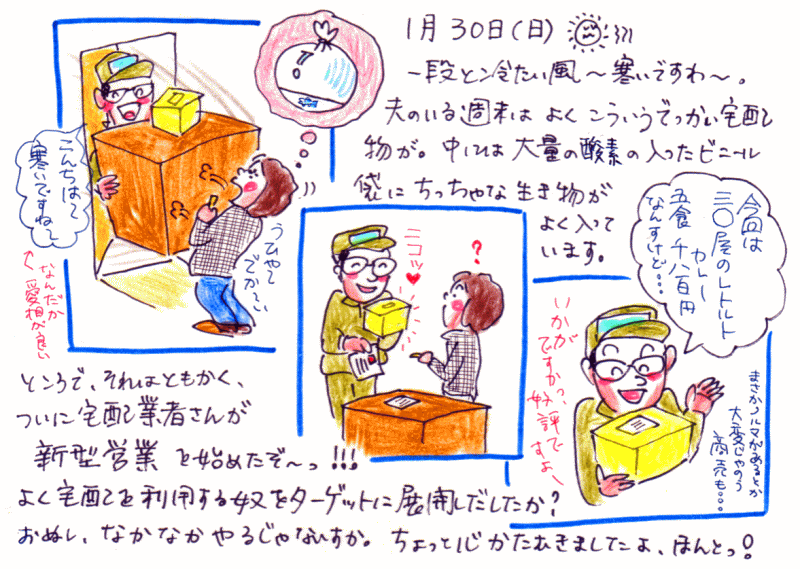 1月30日(日)
一段と冷たい風〜寒いですわ〜。
夫のいる週末は よく こういうでっかい宅配
物が。中には 大量の酸素の入ったビニール
袋に ちっちゃな生き物が
よく入って
います。
こんちは〜
寒いですね〜
なんだか
愛想が良い
うひゃ〜
でか〜い
ニコッ♥
?
今回は
三〇屋のレトルト
カレー
五食 千八百円
なんすけど…
いかが
ですかっ、
好評で
すよ〜
まさかノルマがあるとか
大変じゃのう
商売も…
ところで、それはともかく、
ついに宅配業者さんが
新型営業 を始めたぞ〜っ!!!
よく宅配を利用する奴をターゲットに展開しだしたか?
おぬし、なかなか やるじゃないすか。ちょっと心かたむきましたよ、ほんとっ!